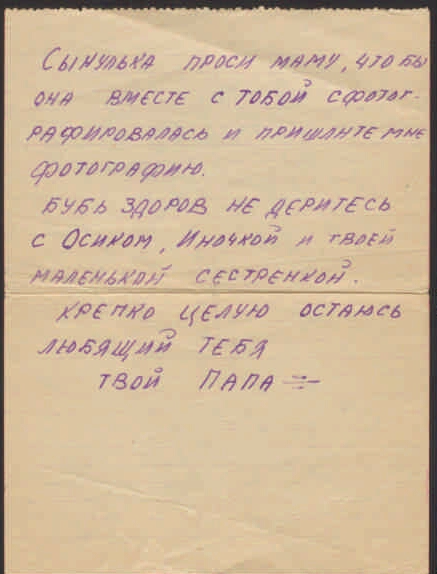 Сынулька проси маму, что бы
она вместе с тобой сфотог-
рафировалась и пришлите мне
фотографию.
Будь здоров не деритесь
с Осиком, Иночкой и твоей
маленькой сестренкой.
Крепко целую остаюсь
любящий тебя
твой папа